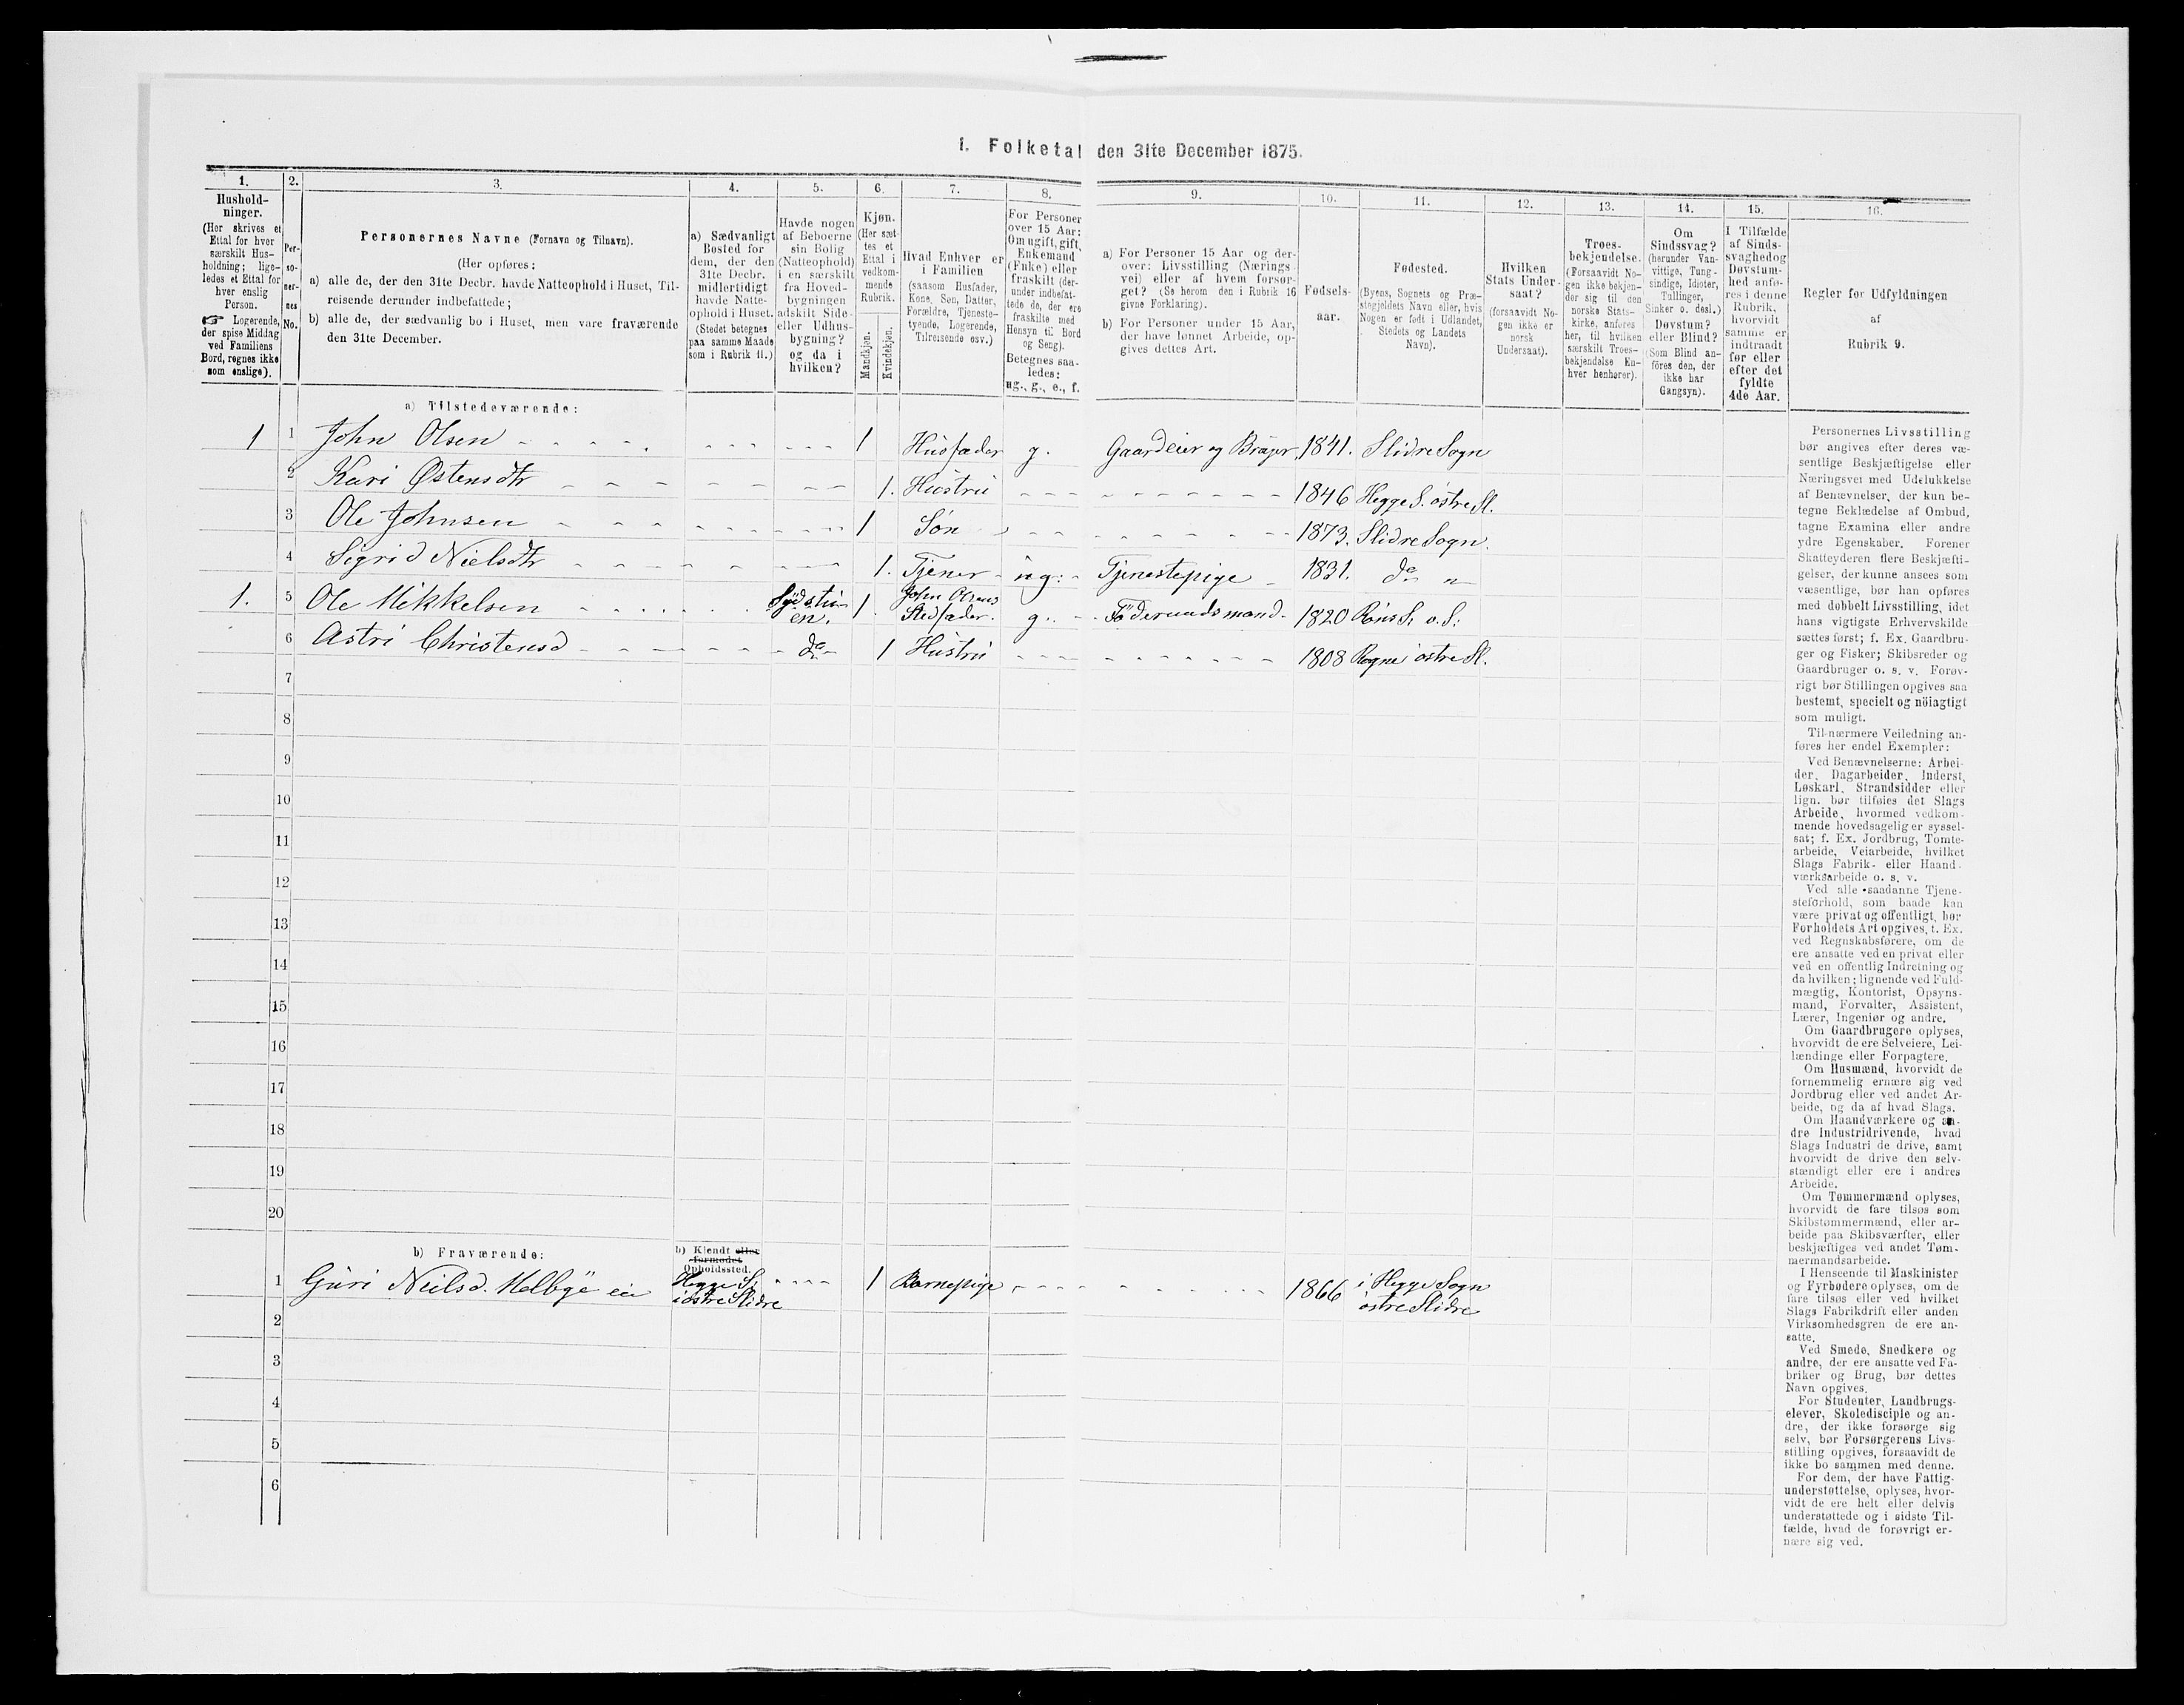 1. Folketal den 31te December 1875.
1.
2.
3.
4.
5.
6.
7.
8.
9.
10.
11.
12.
13.
14.
15.
16.
Hushold-
ninger.
(Her skrives et
Ettal for hver
særskilt Hus-
holdning; lige-
ledes et Ettal for
hver enslig
Person.
☞ Logerende,
der spise Middag
ved Familiens
Bord, regnes ikke
som enslige).
Per-
so-
ner-
nes
No.
Personernes Navne (Fornavn og Tilnavn).
(Her opføres:
a) alle de, der den 31te Decbr. havde Natteophold i Huset, Til-
reisende derunder indbefattede;
b) alle de, der sædvanlig bo i Huset, men vare fraværende
den 31te December.
a) Sædvanligt
Bosted for
dem, der den
31te Decbr.
midlertidigt
havde Natte-
ophold i Huset.
(Stedet betegnes
paa samme Maade
som i Rubrik 11.)
Havde nogen
af Beboerne
sin Bolig
(Natteophold)
i en særskilt
fra Hoved-
bygningen
adskilt Side-
eller Udhus-
bygning?
og da i
hvilken?
Kjøn.
(Her sæt-
tes et
Ettal i
vedkom-
mende
Rubrik.
Mandkjøn.
Kvindekjøn.
Hvad Enhver er
i Familien
(saasom Husfader,
Kone, Søn, Datter,
Forældre, Tjeneste-
tyende, Logerende,
Tilreisende osv.)
For Personer
over 15 Aar:
Om ugift, gift,
Enkemand
(Enke) eller
fraskilt (der-
under indbefat-
tede de, der ere
fraskilte med
Hensyn til Bord
og Seng).
Betegnes saa-
ledes:
ug., g., e., f.
a) For Personer 15 Aar og der-
over: Livsstilling (Nærings-
vei) eller af hvem forsør-
get? (Se herom den i Rubrik 16
givne Forklaring).
b) For Personer under 15 Aar,
der have lønnet Arbeide, op-
gives dettes Art.
Fødsels-
aar.
Fødested.
(Byens, Sognets og Præ-
stegjeldets Navn eller, hvis
Nogen er født i Udlandet,
Stedets og Landets
Navn).
Hvilken
Stats Under-
saat?
(forsaavidt No-
gen ikke er
norsk
Undersaat).
Troes-
bekjendelse.
(Forsaavidt No-
gen ikke bekjen-
der sig til den
norske Stats-
kirke, anføres
her, til hvilken
særskilt Troes-
bekjendelse En-
hver henhører).
Om
Sindssvag?
(herunder Van-
vittige, Tung-
sindige, Idioter,
Tullinger,
Sinker o. desl.)
Døvstum?
eller Blind?
(Som Blind an-
föres den, der
ikke har
Gangsyn).
I Tilfælde
af Sinds-
svaghed og
Døvstum-
hed anfø-
res i denne
Rubrik,
hvorvidt
samme er
indtraadt
før eller
efter det
fyldte
4de Aar.
Regler for Udfyldningen
af
Rubrik 9.
a) Tilstedeværende:
1 1 John Olsen 1 Husfader g. Gaardeier og Bruger. 1841. Slidre Sogn
2 Kari Østensdtr 1. Hustru 1846 Hegge S. østre Sl.
3 Ole Johnsen 1 Søn 1873. Slidre Sogn.
4 Sigrid Nielsdtr 1. Tjener ug: Tjenestepige 1831. do
1. 5 Ole Mikkelsen 1. John Olsens Stedfader. g. Föderaadsmand. 1820
6 Astri Christensd do 1 Hustru 1808 Rogne østre Sl.
7
8
9
10
11
12
13
14
15
16
17
18
19
20
b) Fraværende:
b) Kjendt eller
formodet
Opholdssted.
1 Guri Neilsd. Hegge S. i østre Slidre 1 Barnepige 1866 i Hegge Sogn
østre Slidre
2
3
4
5
6
Personernes Livsstilling
bør angives efter deres væ-
sentlige Beskjæftigelse eller
Næringsvei med Udelukkelse
af Benævnelser, der kun be-
tegne Beklædelse af Ombud,
tagne Examina eller andre
ydre Egenskaber. Forener
Skatteyderen flere Beskjæfti-
gelser, der kunne ansees som
væsentlige, bør han opføres
med dobbelt Livsstilling, idet
hans vigtigste Erhvervskilde
sættes først; f. Ex. Gaardbru-
ger og Fisker; Skibsreder og
Gaardbruger o. s. v. Forøv-
rigt bør Stillingen opgives saa
bestemt, specielt og nöiagtigt
som muligt.
Til nærmere Veiledning an-
føres her endel Exempler:
Ved Benævnelserne: Arbei-
der, Dagarbeider, Inderst,
Løskarl, Strandsidder eller
lign. bør tilføies det Slags
Arbeide, hvormed vedkom-
mende hovedsagelig er syssel-
sat; f. Ex. Jordbrug, Tomte-
arbeide, Veiarbeide, hvilket
Slags Fabrik- eller Haand-
værksarbeide o. s. v.
Ved alle saadanne Tjene-
steforhold, som baade kan
være privat og offentligt, bør
Forholdets Art opgives, t. Ex.
ved Regnskabsførere, om de
ere ansatte ved en privat eller
ved en offentlig Indretning og
da hvilken; lignende ved Fuld-
mægtig, Kontorist, Opsyns-
mand, Forvalter, Assistent,
Lærer, Ingeniør og andre.
Om Gaardbrugere oplyses,
hvorvidt de ere Selveiere, Lei-
lændinge eller Forpagtere.
Om Husmænd, hvorvidt de
fornemmelig ernære sig ved
Jordbrug eller ved andet Ar-
beide, og da af hvad Slags.
Om Haandværkere og an-
dre Industridrivende, hvad
Slags Industri de drive, samt
hvorvidt de drive den selv-
stændigt eller ere i andres
Arbeide.
Om Tømmermænd oplyses,
hvorvidt de fare tilsøs som
Skibstømmermænd, eller ar-
beide paa Skibsværfter, eller
beskjæftiges ved andet Tøm-
mermandsarbeide.
I Henseende til Maskinister
og Fyrbødere oplyses, om de
fare tilsøs eller ved hvilket
Slags Fabrikdrift eller anden
Virksomhedsgren de ere an-
satte.
Ved Smede, Snedkere og
andre, der ere ansatte ved Fa-
briker og Brug, bør dettes
Navn opgives.
For Studenter, Landbrugs-
elever, Skoledisciple og an-
dre, der ikke forsørge sig
selv, bør Forsørgerens Livs-
stilling opgives, forsaavidt de
ikke bo sammen med denne.
For dem, der have Fattig-
understøttelse, oplyses, hvor-
vidt de ere helt eller delvis
understøttede og i sidste Til-
fælde, hvad de forøvrigt er-
nære sig ved.